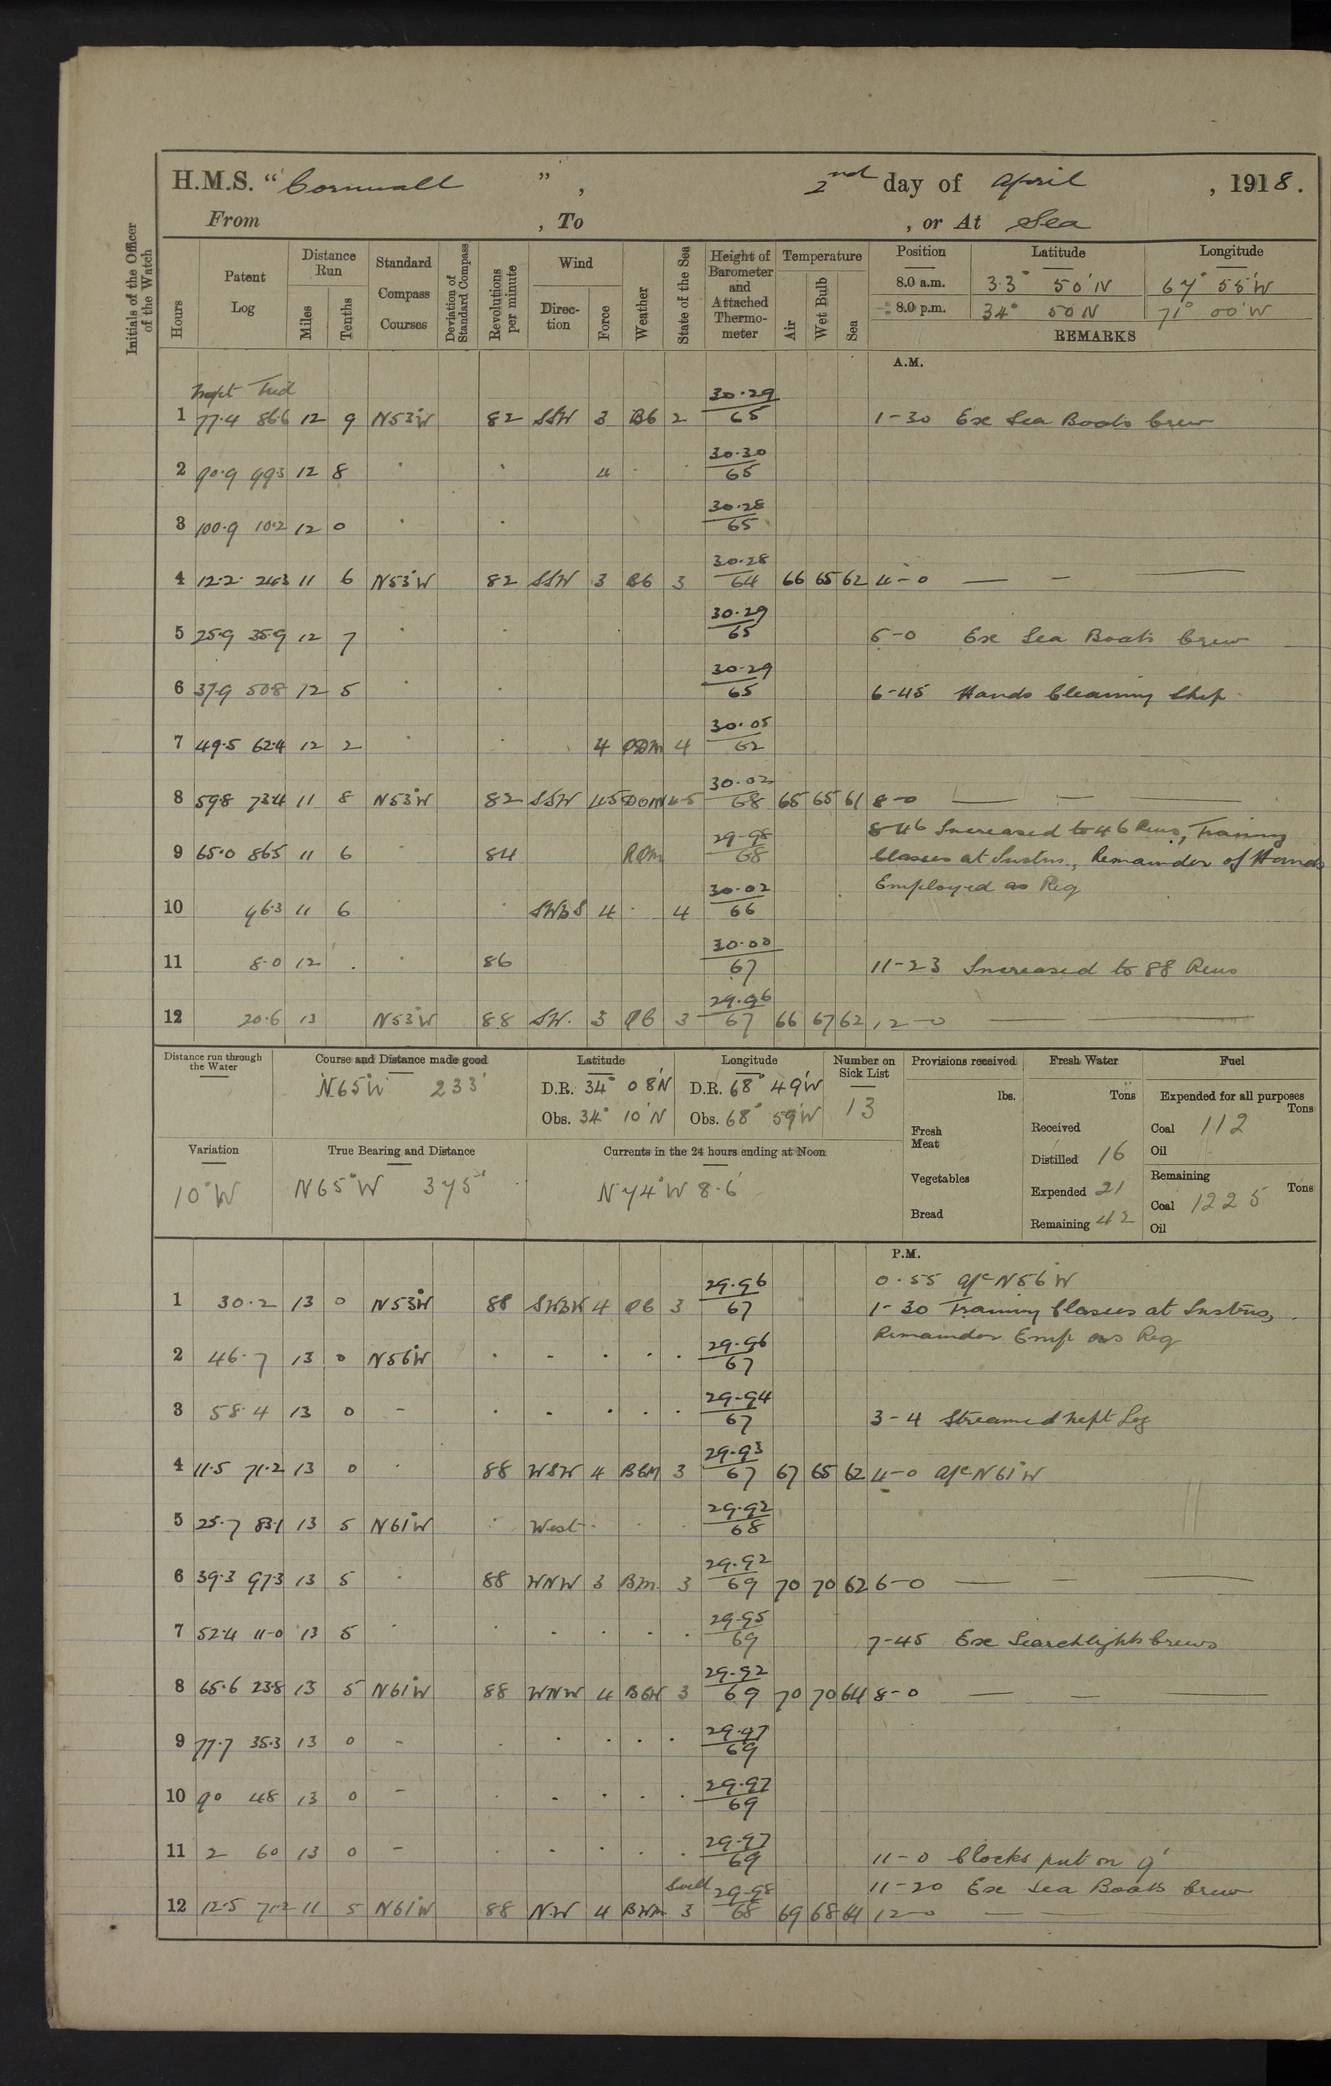 H.M.S. "Cornwall", 2nd day of April, 1918.
From , To , or At Sea
Initials of the Officer of the Watch
Hours
Patent Log
Distance Run
Miles
Tenths
Standard Compass Courses
Deviation of Standard Compass
Revolutions per minute
Wind
Direction
Force
Weather
State of the Sea
Height of Barometer and Attached Thermometer
Temperature
Air
Wet Bulb
Sea
Position Latitude Longitude
8.0 a.m. 33° 50'N 67° 55'W
8.0 p.m. 34° 50 N 71° 00'W
REMARKS
A.M.
1 77.4 866 12 9 N53°W 82 SSW 3 BC 2 30.29 65 1-30 Ex Sea Boats Crew
2 90.9 993 12 8 . . 4 . . 30.30 65
3 100.9 10.2 12 0 . . 30.28 65
4 12.2 243 11 6 N53°W 82 SSW 3 BC 3 30.28 64 66 65 62 4-0 — — —
5 25.9 35.9 12 7 . . 30.29 65 5-0 Ex Sea Boats Crew
6 37.9 508 12 5 . . 30.29 65 6-45 Hands Cleaning Ship.
7 49.5 62.4 12 2 . . 4 ODM 4 30.05 62
8 59.8 73.4 11 8 N53°W 82 SSW 4.5 4-5 30.02 68 65 65 61 8-0 — — —
8 46 Increased to 46 Revs, Training
9 65.0 865 11 6 84 29-98 68 Classes at Instns., Remainder of Hands
Employed as Req
10 96.3 11 6 . . SWBS 4 . 4 30.02 66
11 8.0 12 . . 86 30.00 67 11-23 Increased to 88 Revs
12 20.6 13 N53°W 88 SW. 3 3 29.96 67 66 67 62 12-0 — —
Distance run through the Water
Course and Distance made good
N65°W 233'
Latitude
D.R. 34° 08'N
Obs. 34° 10'N
Longitude
D.R. 68° 49'W
Obs. 68° 59'W
Number on Sick List
13
Variation
10°W
True Bearing and Distance
N65°W 375'
Currents in the 24 hours ending at Noon
N74°W 8.6'
Provisions received
lbs.
Fresh Meat
Vegetables
Bread
Fresh Water
Tons
Received
Distilled 16
Expended 21
Remaining 42
Fuel
Expended for all purposes
Tons
Coal 112
Oil
Remaining
Tons
Coal 1225
Oil
P.M.
0.55 a/c N56°W
1 30.2 13 0 N53°W 88 SWBW 4 3 29.96 67 1-30 Training Classes at Instns,
Remainder Emp as Req
2 46.7 13 0 N56°W . - . . . 29.96 67
3 58.4 13 0 - . - . . . 29-94 67 3-4 Streamed Nept Log
4 11.5 71.2 13 0 . 88 WSW 4 BCM 3 29.93 67 67 65 62 4-0 a/c N61°W
5 25.7 83.1 13 5 N61°W . West . . . 29.92 68
6 39.3 97.3 13 5 . 88 WNW 3 BM. 3 29.92 69 70 70 62 6-0 — — —
7 52.4 11-0 13 5 . . - . . . 29-95 69 7-45 Ex Searchlights Crews
8 65.6 23.8 13 5 N61°W 88 WNW 4 3 29-92 69 70 70 64 8-0 — — —
9 77.7 35.3 13 0 - . . . . . 29.97 69
10 90 48 13 0 - . - . . . 29-97 69
11 2 60 13 0 - . . . . . 29-97 69 11-0 Clocks put on 9'
11-20 Ex Sea Boats Crew
12 12.5 71.2 11 5 N61°W 88 N.W 4 Swell 3 29-98 68 69 68 64 12-0 — —